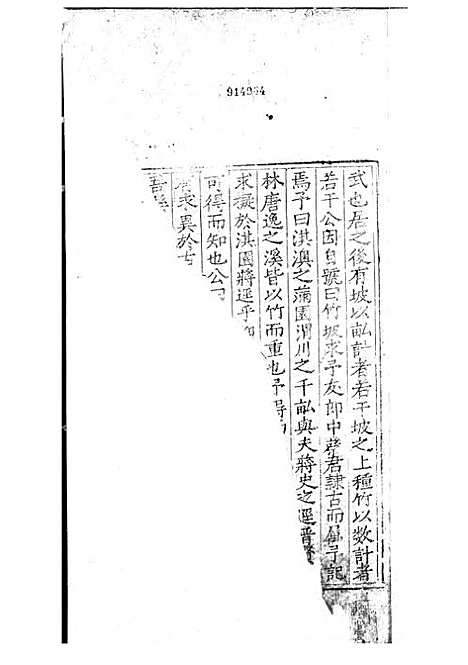 914964
武也居之後有坡以畝計者若干坡之上種竹以数計者
若干公因自號曰竹坡求予友郎中蔡君隷古而 予記
焉予曰淇澳之 園渭川之千畝與夫蔣史之逕晉賢
林唐逸之溪皆以竹而重也予
求擬於淇園將逕乎
可得而知也公
求異於
吾